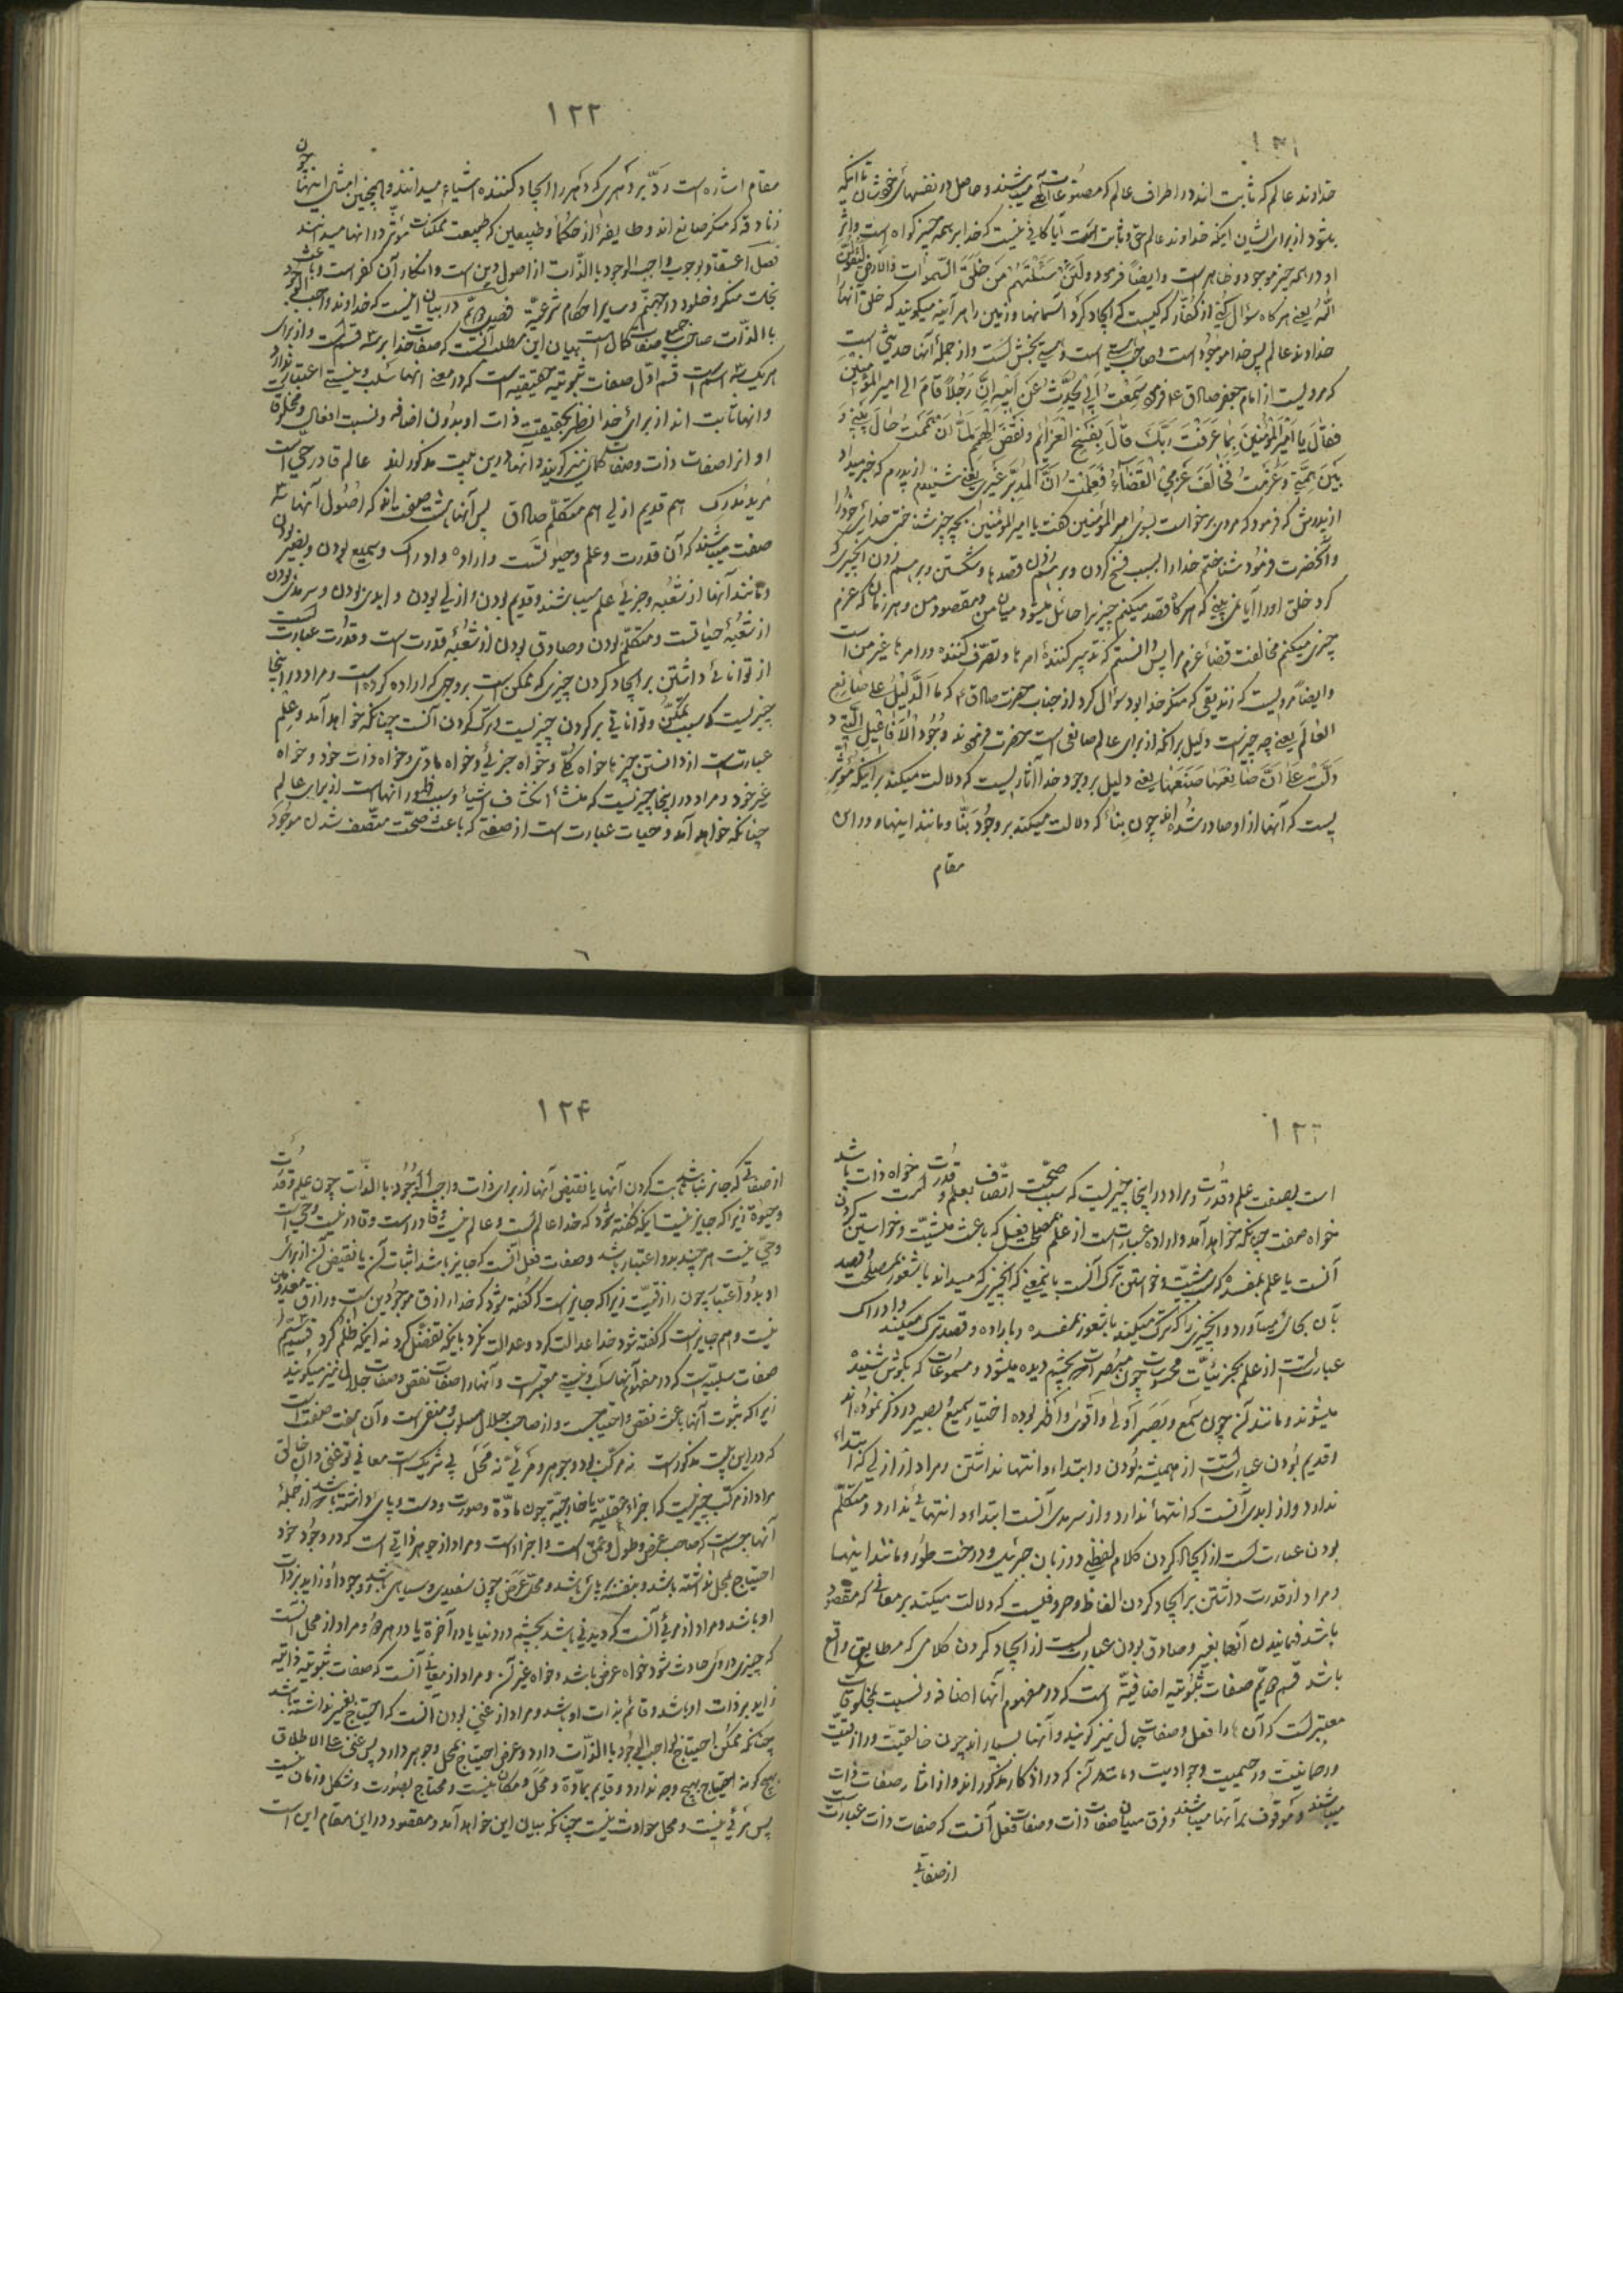 ۱۲۱
خداوند عالم که ثابت اند در اطراف عالم که مصنوعات الهی میباشند و حاصل در نفسهای خودشان تا اینکه
بشود از برای ایشان اینکه خداوند عالم حق و ثابت است آیا کافی نیست که خدا بر همه چیز گواه است و اثر
او در همه چیز موجود و ظاهر است و ایضاً فرموده ولَئِنْ سَئَلْتَهُمْ مَنْ خَلَقَ السَّمواتِ والارضَ لَیَقُولُنَّ
اللّهُ یعنی هر گاه سؤال کنی از کفّار که کیست که ایجاد کرد آسمانها و زمین را هر آینه میگویند که خلق آنها
خداوند عالم پس خدا موجود است و صاحب هستی است و هستی بخش است و از جملهٔ آنها حدیثی است
که مرویست از امام جعفر صادق ع فرمود سَمِعْتُ اَبی یُحَدِّثُ عَنْ اَبیهِ اِنَّ رَجُلاً قامَ الی امیرالمؤمنین
فقالَ یا اَمیرَ المُؤمنینَ بِما عَرَفْتَ رَبَّکَ قالَ بِفَسْخِ العَزائِمِ ونَقْضِ الهِمَمِ لَمّا اَنْ هَمَمْتُ حالَ بَیْنی وَ
بَیْنَ هِمَّتی وَعَزَمْتُ فَخالَفَ عَزْمی القَضاءُ فَعَلِمْتُ اَنَّ المُدَبِّرَ غَیْری یعنی شنیدم از پدرم که خبر میداد
از پدرش که فرمود که مردی برخواست بسوی امیرالمؤمنین گفت یا امیرالمؤمنین بچه چیز شناختی خدای خود را
و آنحضرت فرمود شناختم خدا را بسبب فسخ کردن و برهم زدن قصدها و شکستن و برهم زدن آنچیزی که
کرد خلق او را آیا نمی‌بینی که هر گاه قصد میکنم چیزیرا حائل میشود میان من و مقصود من و هر زمان که عزم
چیزی میکنم مخالفت قضا عزم مرا پس دانستم که تدبیر کنندهٔ امرها و تصرّف کننده در امرها غیر من است
و ایضاً مرویست که زندیقی که منکر خدا بود سؤال کرد از جناب حضرت صادق ع که ما الدَّلیلُ علی صانعِ
العالَمِ یعنی چه چیز است دلیل بر آنکه از برای عالم صانعی است حضرت فرمودند وُجُودُ الاَفاعیلِ الَّتی
دَلَّتْ عَلی اَنَّ صانِعَها صَنَعَها یعنی دلیل بر وجود خدا آثاریست که دلالت میکند بر اینکه مؤثر
یست که آنها از او صادر شده اند چون بناء که دلالت میکند بر وجُود بَنّا و مانند اینها و در این
مقام
۱۲۲
مقام اشاره است ردّ بر دَهری که دَهر را ایجاد کننده اشیاء میدانند و همچنین امثال اینها چون
زنادقه که منکر صانع اند و طایفهٔ از حکما و طبیعین که طبیعت ممکنات مؤثر در آنها میدانند
فصل اعتقاد بوجوب واجب الوجود بالذّات از اصول دین است و انکار آن کفر است و باعث
نجات منکر و خلود در جهنّم و سایر احکام شرعیّة فصل دویّم در بیان اینست که خداوند واجب الوجود
بالذّات صاحب جمیع صفات کمال است بیان این مطلب آنست که صفات خدا بر سه قسم است و از برای
هر یک سه اسم است قسم اوّل صفات ثبوتیّه حقیقیّه است که در معنی انها سلب و نیستی اعتبار ندارد
و انها ثابت اند از برای خدا از نظر بحقیقت ذات او بدون اضافه و نسبت افعال و مخلوقات
او انرا صفات ذات و صفات کمال نیز گویند و آنها در این بیت مذکورند عالم قادر حی است
مُرید مُدرِک هم قدیم ازلی هم متکلّم صادق پس آنها هشت صفت اند که اصُول آنها سه
صفت میباشند که آن قدرت و علم و حیوتست و اراده و ادراک و سمیع بودن و بصیر بودن
و مانند آنها از شُعبه و جزئی علم میباشند و قدیم بودن و ازلی بودن و ابدی بودن و سرمدی بودن
از شعبهٔ حیاتست و متکلّم بودن و صادق بودن از شعبهٔ قدرت است و قدرت عبارت است
از توانائی داشتن بر ایجاد کردن چیزی که ممکن است بر وجهی که اراده کرده است و مراد در اینجا
چیزیست که سبب تمکّن و توانائی بر کردن چیزیست و ترک کردن آنست چنانکه خواهد آمد و علم
عبارتست از دانستن چیزها خواه کلّی و خواه جزئی و خواه مادّی و خواه ذات خود و خواه
غیر خود و مراد در اینجا چیزیست که منشأ انکشاف اشیاء و سبب ظهور آنهاست از برای عالم
چنانکه خواهد آمد و حیات عبارت است از صفتی که باعث صحّت متّصف شدن موجود
۱۲۳
است بصفت علم و قدرت و مراد در اینجا چیزیست که سبب صحّت اتّصاف بعلم و قدرت است خواه ذات باشد
خواه صفت چنانکه خواهد آمد و اراده عبارتست از علم بمصلحت فعل که باعث مشیّت و خواستن کردن
آنست یا علم بمفسده که مشیّت و خواستن ترک آنست باینمعنی که آنچیزی که میداند با شعور بمصلحت و قصد
بآن بجای میآورد و آنچیزی را که ترک میکند با شعور بمفسده و باراده و قصد ترک میکند و ادراک
عبارتست از علم بجزئیّات محسوسات چون مبصرات که بچشم دیده میشود و مسموعات که بگوش شنیده
میشوند و مانند آن چون سَمع و بَصَر اَولی و اَقوی و اَظهر بوده اختیار سمیع بصیر در ذکر نموده اند
و قدیم بُودن عبارتست از همیشه بُودن و ابتداء و انتها نداشتن و مراد از ازلی که ابتداء
ندارد و از ابدی آنست که انتها ندارد و از سرمدی آنست ابتداء و انتهائی ندارد و متکلّم
بودن عبارتست از ایجاد کردن کلام لفظی در زبان جبرئیل و درخت طُور و مانند اینها
و مراد از قدرت داشتن بر ایجاد کردن الفاظ و حروفیست که دلالت میکند بر معانی که مقصود
باشد فهمانیدن آنها بغیر و صادق بودن عبارتست از ایجاد کردن کلامی که مطابق واقع
باشد قسم دویّم صفات ثبُوتیه اضافیّه است که در مفهوم آنها اضافه و نسبت بمخلوقات
معتبر است که آن ها را فعل و صفات جمال نیز گویند و آنها بسیار اند چون خالقیّت و رازقیّت
و رحمانیّت و رحیمیت و جوادیت و مانند آن که در اذکار مذکور اند و از آثار صفات ذات
میباشند و موقوف بر آنها میباشند و فرق میان صفات ذات و صفات فعل آنست که صفات ذات عبارتست
از صفاتی
۱۲۴
از صفاتی که جایز نباشد ثابت کردن آنها یا نقیض آنها از برای ذات واجب الوُجُود بالذّات چون علم و قدرت
و حیوة زیرا که جایز نیست اینکه گفته شود که خدا عالم است و عالم نیست و قادر است و قادر نیست و حی است
و حیّ نیست هر چند بدو اعتبار باشد و صفات فعل آنست که جایز باشد اثبات آن یا نقیض آن از برای
او بدو اعتبار چون رازقیّت زیرا که جایز است که گفته شود که خدا رازق موجودین است و رازق معدومین
نیست و هم جایز است که گفته شود خدا عدالت کرد و عدالت نکرد بلکه تفضّل کرد نه اینکه ظلم کرد قسم سیّم
صفات سلبیّه است که در مفهوم آنها سلب و نیستی معتبر است و آنها را صفات نقص و صفات جلال نیز میگویند
زیرا که ثبوت آنها باعث نقص و احتیاج است و از صاحب جلال مسلوب و منفی است و آن هفت صفت است
که در این بیت مذکور است نه مرکّب بود و جوهر و مرئی نه محَل بی شریک است معانی تو غنی دان خالق
مراد از مرکّب چیزیست که اجزاء عقلیّه یا خارجیّه چون مادّة و صورت و دست و پای داشته باشد از جملهٔ
آنها جسم است که صاحب عرض و طول و عمق است و اجزاء است و مراد از جوهر ذاتی است که در وجُود خود
احتیاج بمحل نداشته باشد و بنفسه برپای باشد و محلّ عَرَض چون سفیدی و سیاهی باشد و وجود او زاید بر ذات
او باشد و مراد از مرئی آنست که دیدنی باشد بچشم در دنیا یا در آخرة یا در هر دو و مراد از محل آنست
که چیزی در وی حادث شود خواه عرض باشد و خواه غیر آن و مراد از معانی آنست که صفات ثبوتیّه ذاتیه
زاید بر ذات او باشد و قائم بذات او باشد و مراد از غنی بودن آنست که احتیاج بغیر نداشته باشد
چنانکه ممکن احتیاج بواجب الوجُود بالذّات دارد و عرض احتیاج بمحل و جوهر دارد پس غنی علی الاطلاق
بهیچ گونه احتیاج بهیچ وجه ندارد و قایم بمادّة و محَل و مکان نیست و محتاج بصُورت و شکل و زمان نیست
پس مرئی نیست و محل حوادث نیست چنانکه بیان این خواهد آمد و مقصود در این مقام این است